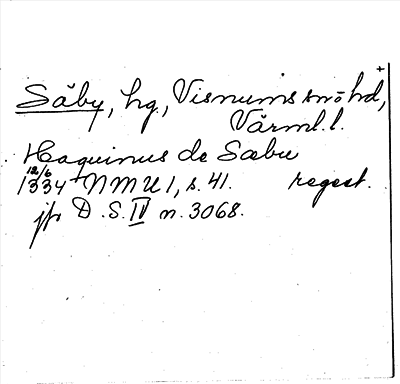 Säby, hg., Visnums sn o hd,
Värml. l.
Haquinus de Sæbu
12/6
1334 NMU 1, s. 41. regest.
jfr D.S. IV n. 3068.